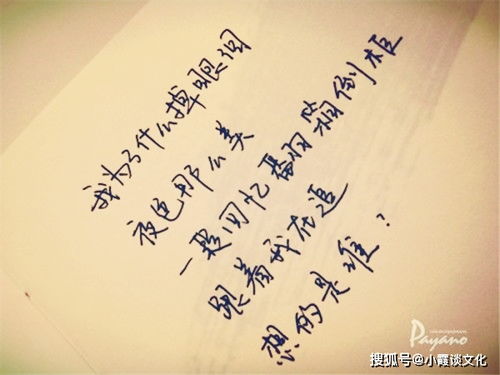 我为了什么掉眼泪
夜色那么美
一题回忆翻箱倒柜
跟着我在追
想的是谁?
Payano
搜狐号@小霞谈文化